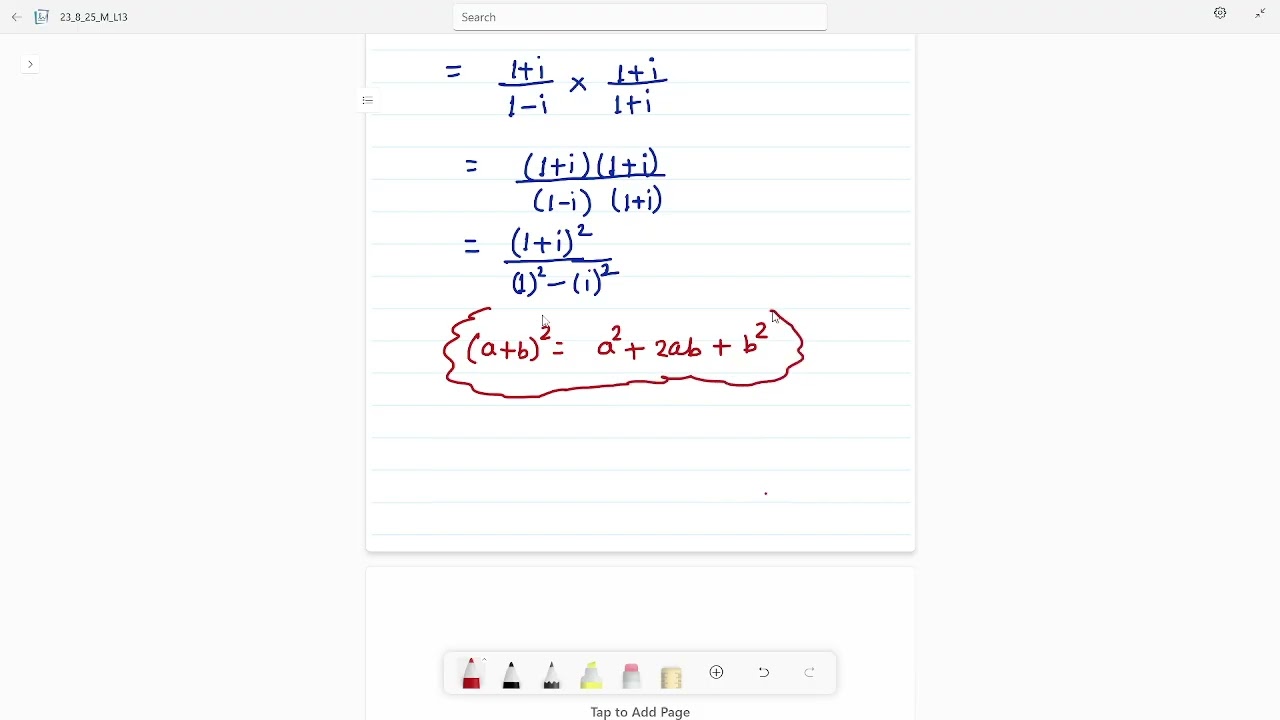 23_8_25_M_L13
Search
= 1+i/1-i × 1+i/1+i
= (1+i)(1+i)/(1-i) (1+i)
= (1+i)²/(1)² - (i)²
(a+b)² = a² + 2ab + b²
Tap to Add Page